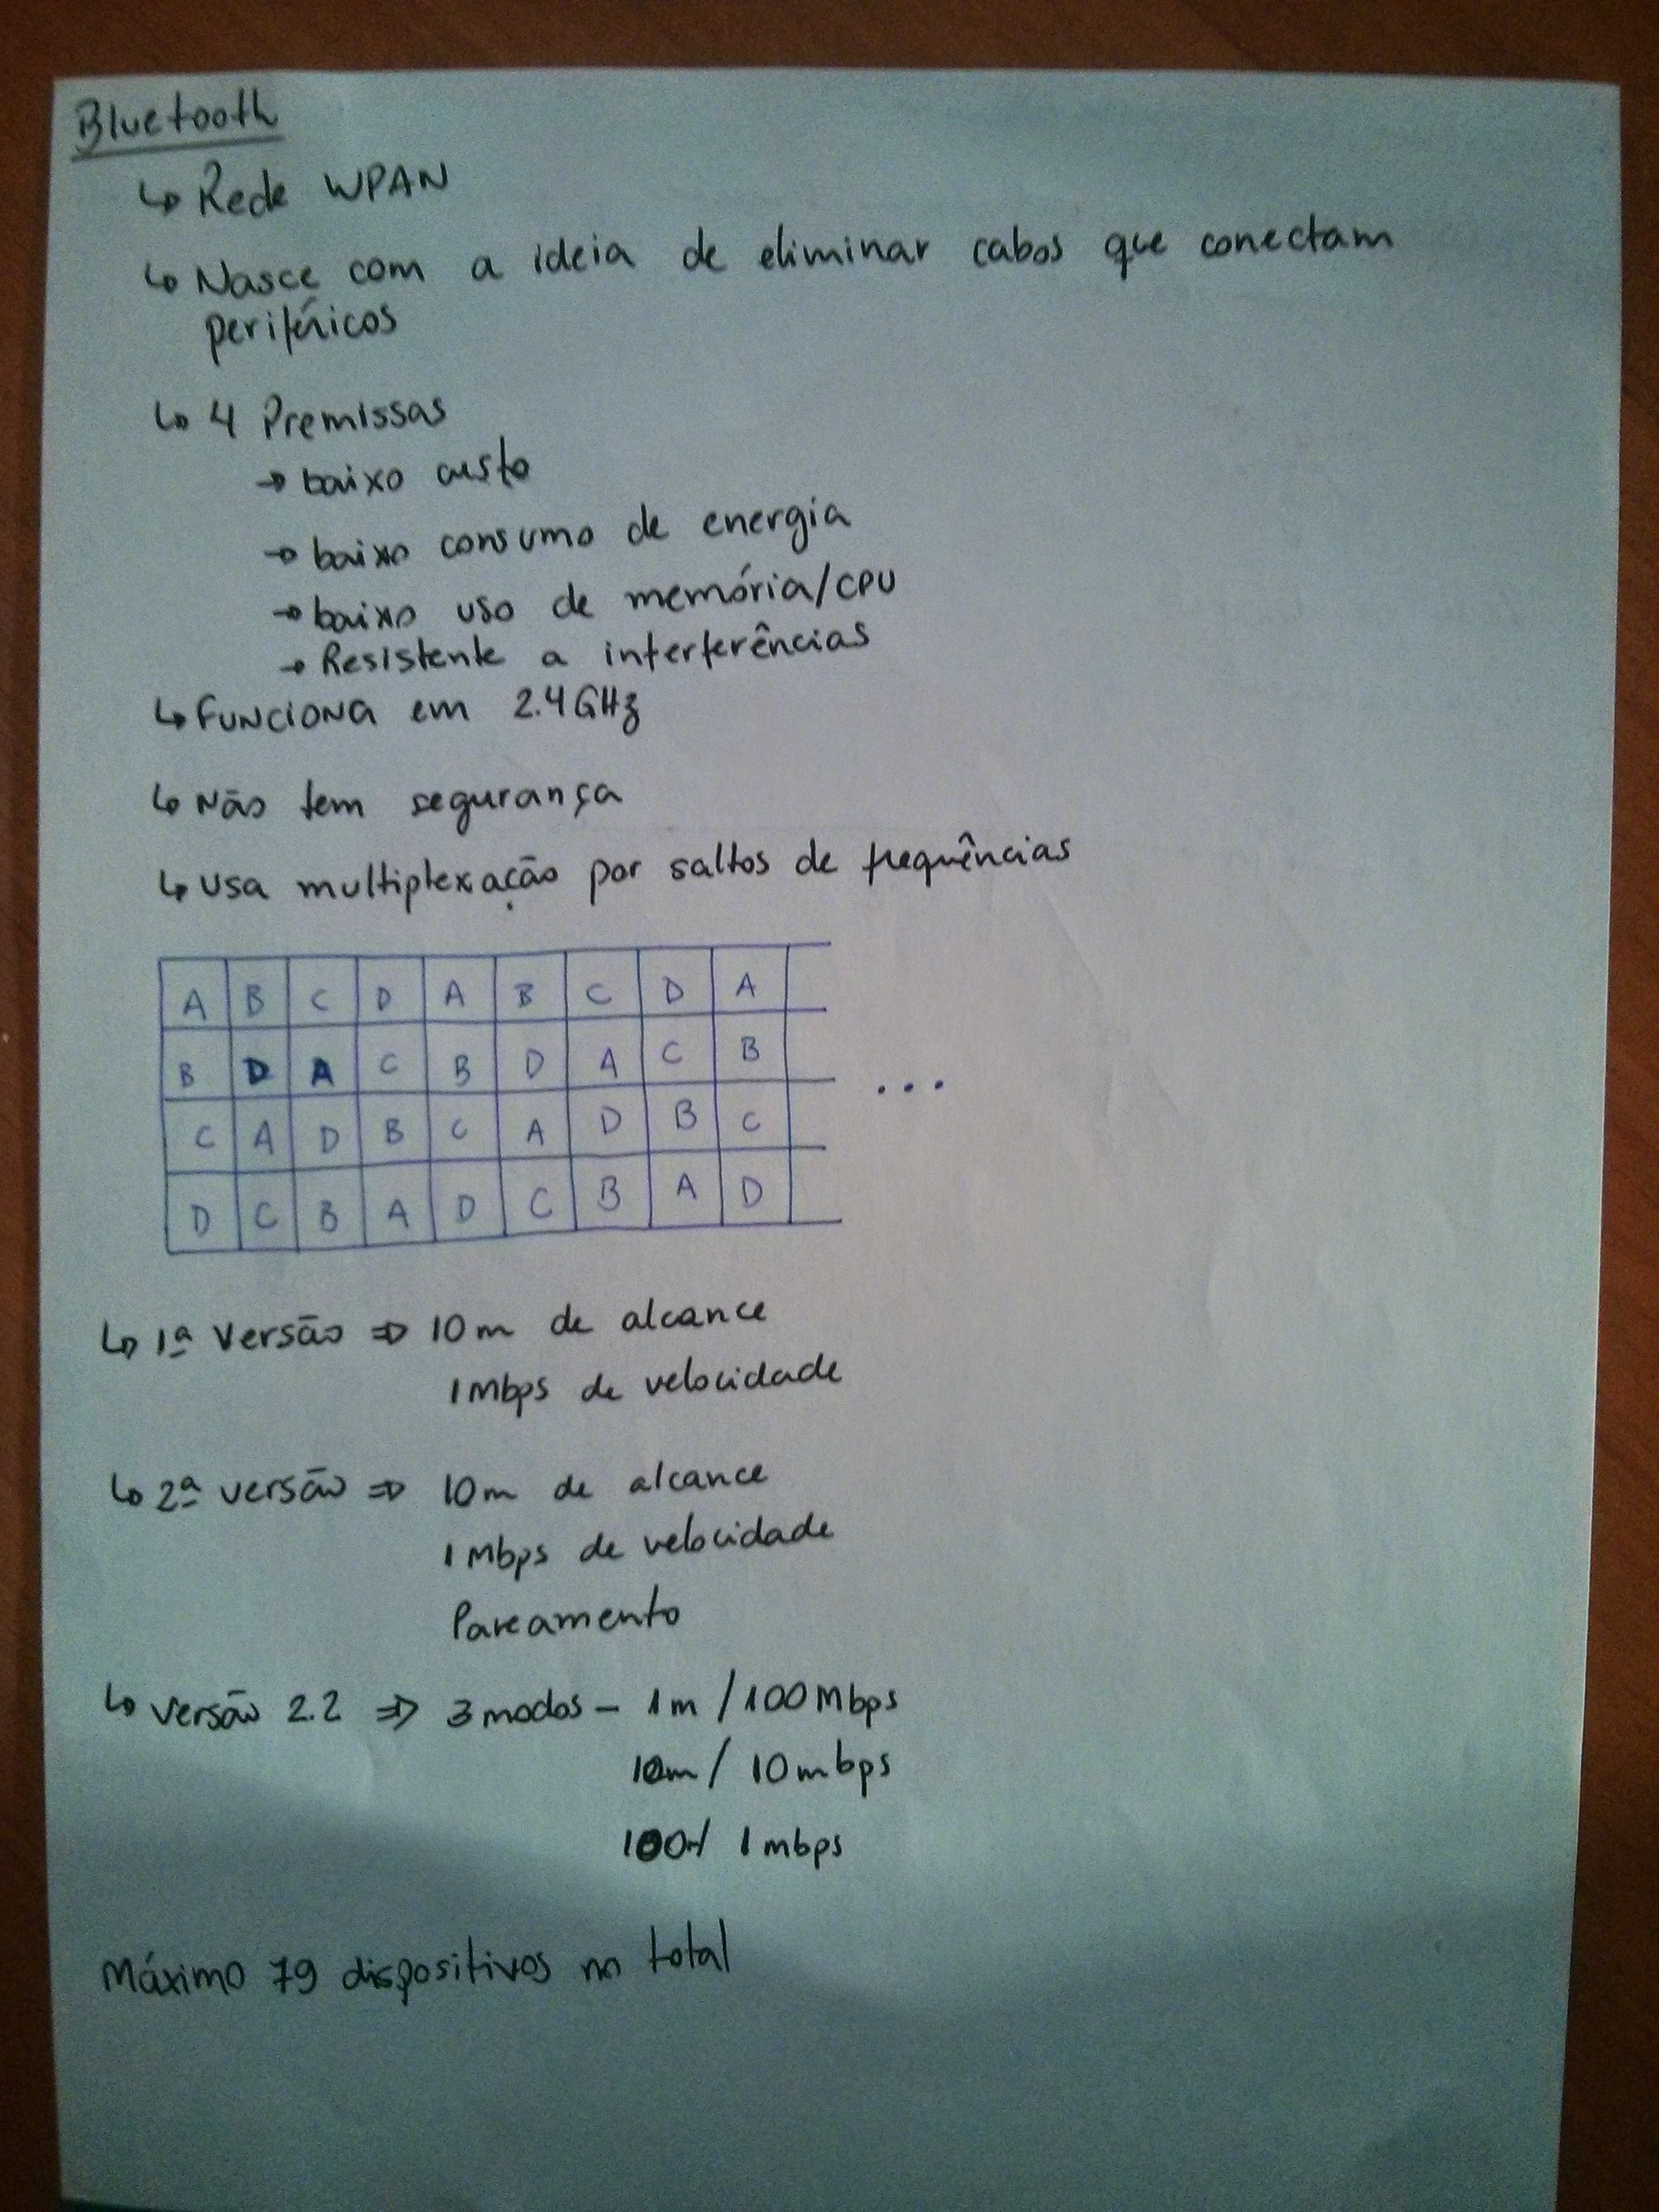 Bluetooth
↳ Rede WPAN
↳ Nasce com a ideia de eliminar cabos que conectam
periféricos
↳ 4 Premissas
→ baixo custo
→ baixo consumo de energia
→ baixo uso de memória/CPU
→ Resistente a interferências
↳ Funciona em 2.4GHz
↳ Não tem segurança
↳ Usa multiplexação por saltos de frequências
A B C D A B C D A
B D A C B D A C B ...
C A D B C A D B C
D C B A D C B A D
↳ 1ª versão ⇒ 10m de alcance
1Mbps de velocidade
↳ 2ª versão ⇒ 10m de alcance
1Mbps de velocidade
Pareamento
↳ versão 2.2 ⇒ 3 modos - 1m / 100Mbps
10m / 10mbps
100m/ 1mbps
Máximo 79 dispositivos no total